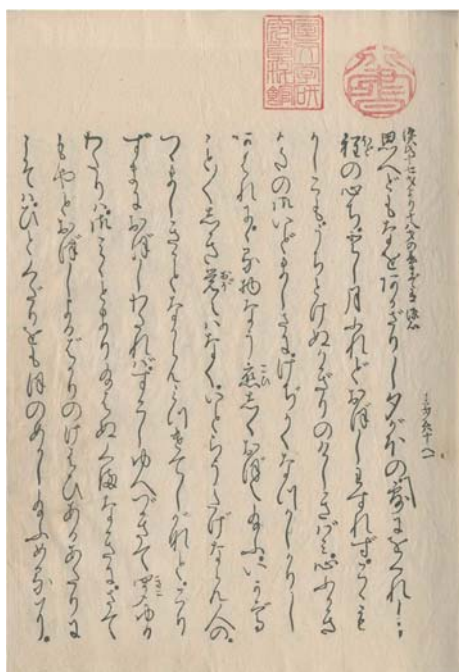 國文學研
究資料館
思へどもなをあかざりし夕がほの露にをくれし
程の心ちを、とし月ふれどおぼしわすれず、こゝも
かしこも、うちとけぬかぎりのけしきばみ、心ふかき
かたの御いどましさに、けぢかくなつかしかりし
あはれに、にる物なう恋しくおぼえ給ふ。いかで
こと〴〵しき覚えはなく、いとらうたげならん人の、
つゝましきことなからん、見つけてしがなと、こり
ずまにおぼしわたれば、すこしゆへづきて聞ゆる
わたりは、御みゝとゞめ給はぬくまなきに、さて
もやとおぼしよるばかりのけはひあるあたりに
こそは、ひとくだりをもほのめかし給ふめるに、